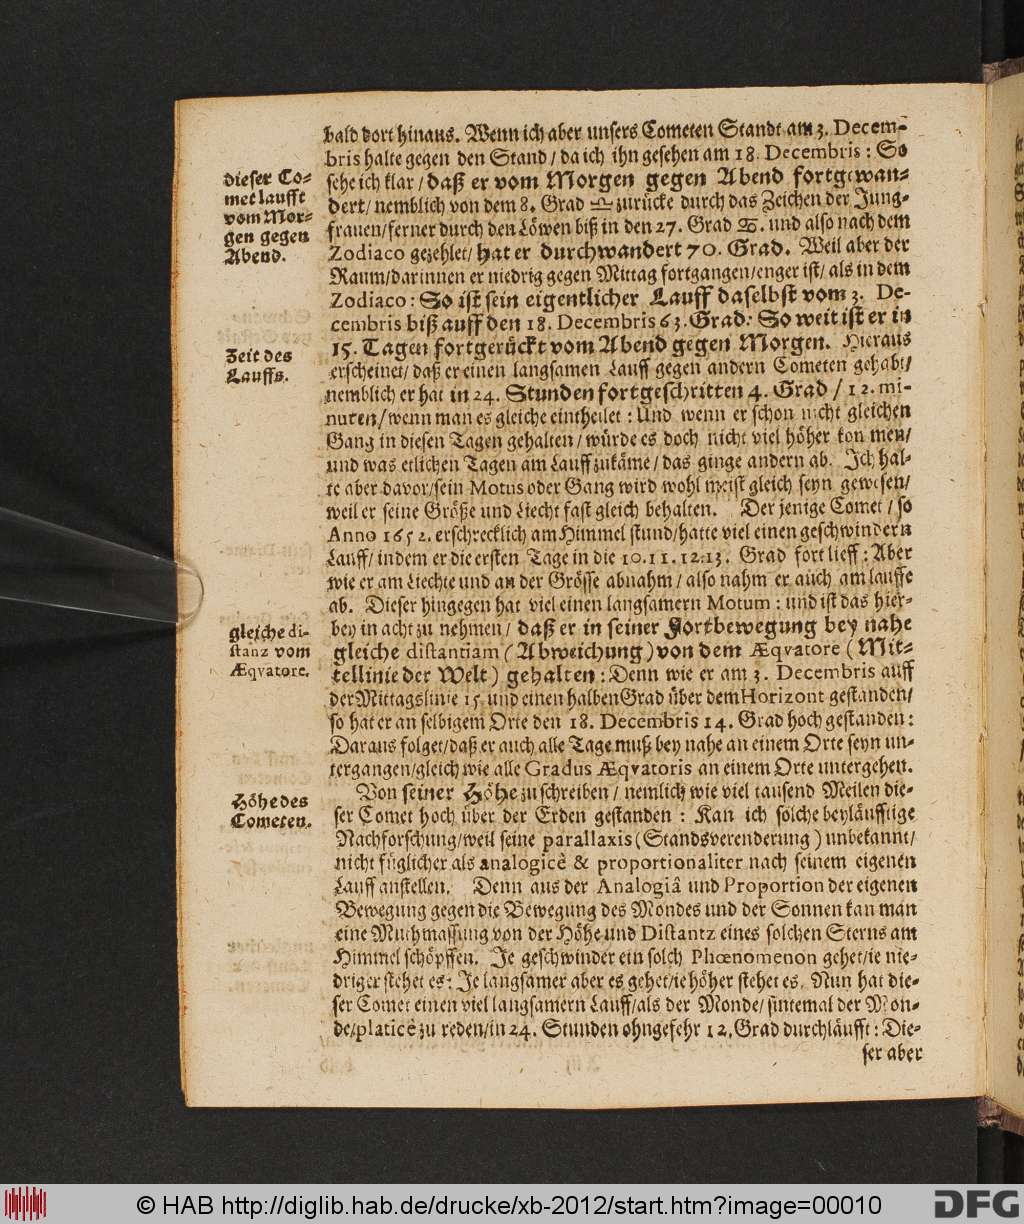 bald dort hinaus. Wenn ich aber unsers Cometen Standt am 3. Decem-
bris halte gegen den Stand / da ich ihn gesehen am 18. Decembris: So
sehe ich klar / daß er vom Morgen gegen Abend fortgewan-
dert / nemblich von dem 8. Grad ♎ zurücke durch das Zeichen der Jung-
frauen / ferner durch den Löwen biß in den 27. Grad ♋. und also nach dem
Zodiaco gezehlet / hat er durchwandert 70. Grad. Weil aber der
Raum / darinnen er niedrig gegen Mittag fortgangen / enger ist / als in dem
Zodiaco: So ist sein eigentlicher Lauff daselbst vom 3. De-
cembris biß auff den 18. Decembris 63. Grad: So weit ist er in
15. Tagen fortgerückt vom Abend gegen Morgen. Hieraus
erscheinet / daß er einen langsamen Lauff gegen andern Cometen gehabt /
nemblich er hat in 24. Stunden fortgeschritten 4. Grad / 12. mi-
nuten / wenn man es gleiche eintheilet: Und wenn er schon nicht gleichen
Gang in diesen Tagen gehalten / würde es doch nicht viel höher kommen /
und was etlichen Tagen am Lauff zukäme / das ginge andern ab. Ich hal-
te aber davor / sein Motus oder Gang wird wohl meist gleich seyn gewesen /
weil er seine Größe und Liecht fast gleich behalten. Der jenige Comet / so
Anno 1652. erschrecklich am Himmel stund / hatte viel einen geschwindern
Lauff / indem er die ersten Tage in die 10. 11. 12. 13. Grad fort lieff: Aber
wie er am Liechte und an der Grösse abnahm / also nahm er auch am lauffe
ab. Dieser hingegen hat viel einen langsamern Motum: und ist das hier-
bey in acht zu nehmen / daß er in seiner Fortbewegung bey nahe
gleiche distantiam (Abweichung) von dem Æqvatore (Mit-
tellinie der Welt) gehalten: Denn wie er am 3. Decembris auff
der Mittagslinie 15 und einen halben Grad über dem Horizont gestanden /
so hat er an selbigem Orte den 18. Decembris 14. Grad hoch gestanden:
Daraus folget / daß er auch alle Tage muß bey nahe an einem Orte seyn un-
tergangen / gleich wie alle Gradus Æqvatoris an einem Orte untergehen.
Von seiner Höhe zu schreiben / nemlich wie viel tausend Meilen die-
ser Comet hoch über der Erden gestanden: Kan ich solche beyläufftige
Nachforschung / weil seine parallaxis (Standsverenderung) unbekannt /
nicht füglicher als analogicè & proportionaliter nach seinem eigenen
Lauff anstellen. Denn aus der Analogiâ und Proportion der eigenen
Bewegung gegen die Bewegung des Mondes und der Sonnen kan man
eine Muthmassung von der Höhe und Distantz eines solchen Sterns am
Himmel schöpffen. Je geschwinder ein solch Phœnomenon gehet / ie nie-
driger stehet es: Je langsamer aber es gehet / ie höher stehet es. Nun hat die-
ser Comet einen viel langsamern Lauff / als der Monde / sintemal der Mon-
de / platicè zu reden / in 24. Stunden ohngefehr 12. Grad durchläufft: Die-
ser aber
dieser Co-
met laufft
vom Mor-
gen gegen
Abend.
Zeit des
Lauffs.
gleiche di-
stanz vom
Æqvatore.
Höhe des
Cometen.
© HAB http://diglib.hab.de/drucke/xb-2012/start.htm?image=00010
DFG